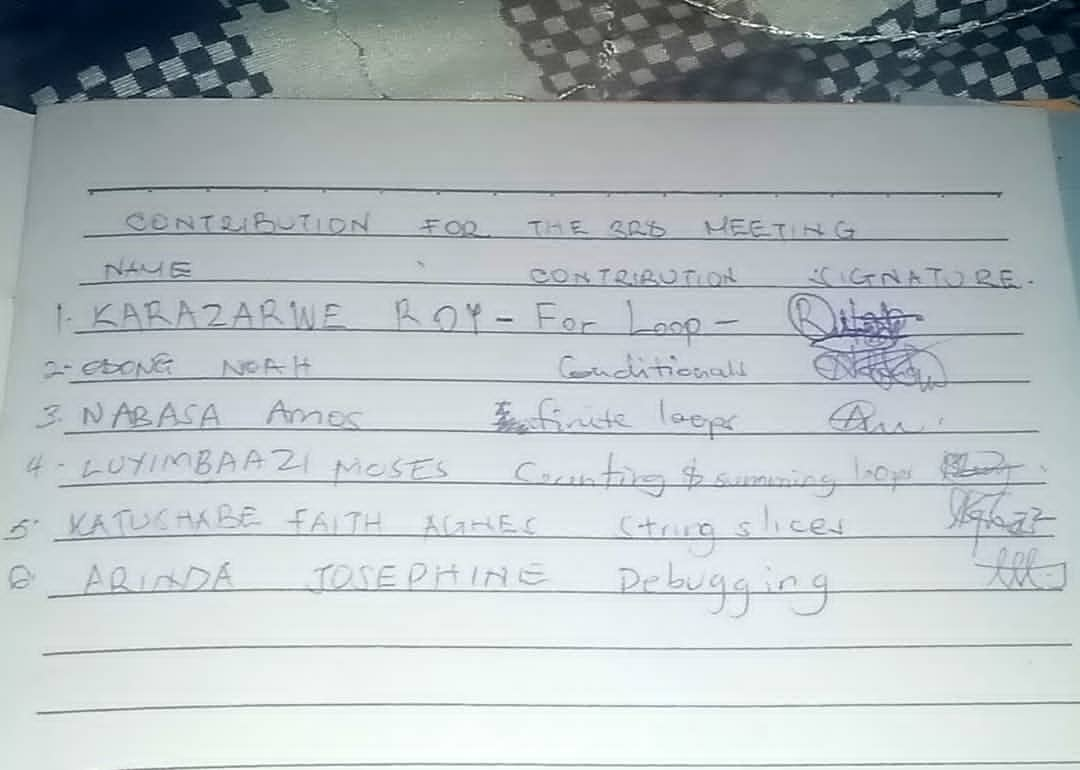 CONTRIBUTION FOR THE 3RD MEETING
NAME CONTRIBUTION SIGNATURE.
1. KARAZARWE ROY - For Loop -
2- EBONG NOAH Conditionals
3. NABASA Amos finite loops
4- LUYIMBAAZI MOSES Counting & summing loops
5. KATUSHABE FAITH AGNES String slices
6. ARINDA JOSEPHINE Debugging